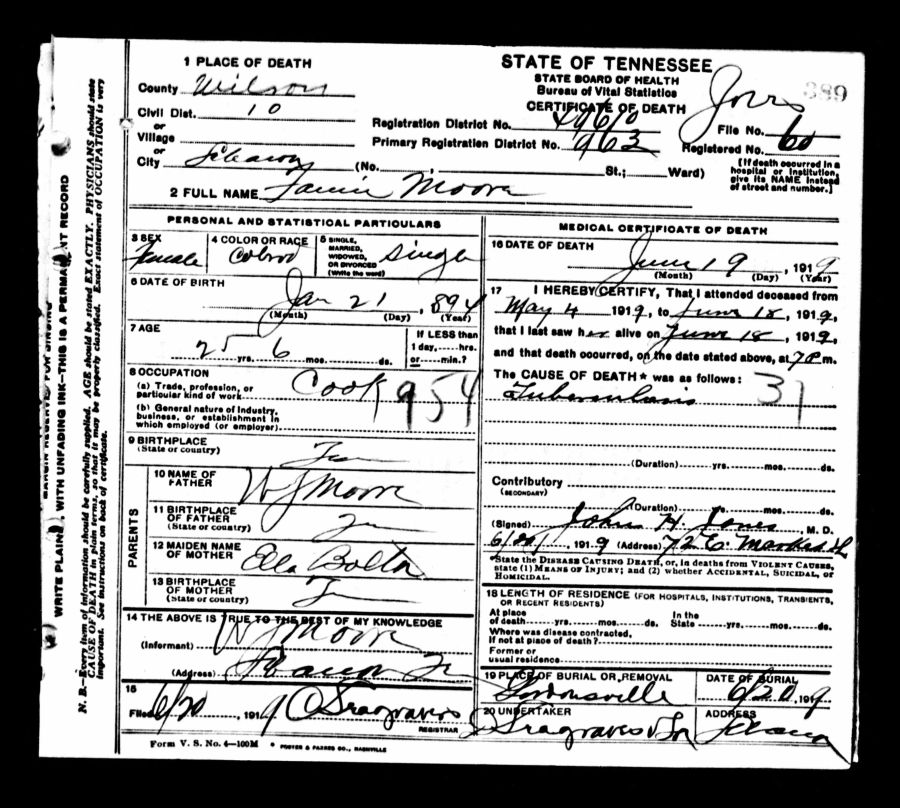 STATE OF TENNESSEE
STATE BOARD OF HEALTH
Bureau of Vital Statistics
CERTIFICATE OF DEATH
389
1 PLACE OF DEATH
County Wilson
Civil Dist. 10
or
Village
or
City Lebanon (No. St.; Ward)
Registration District No.
Primary Registration District No. 963
File No.
Registered No. 60
(If death occurred in a hospital or institution, give its NAME instead of street and number.)
2 FULL NAME Fannie Moore
PERSONAL AND STATISTICAL PARTICULARS
3 SEX
Female
4 COLOR OR RACE
Colored
5 SINGLE, MARRIED, WIDOWED, OR DIVORCED (Write the word)
Single
6 DATE OF BIRTH
Jan 21, 1894
(Month) (Day) (Year)
7 AGE
25 yrs. 6 mos. ds.
If LESS than 1 day,....hrs. or....min.?
8 OCCUPATION
(a) Trade, profession, or particular kind of work Cook 954
(b) General nature of Industry, business, or establishment in which employed (or employer)
9 BIRTHPLACE
(State or country) Tn
PARENTS
10 NAME OF FATHER W J Moore
11 BIRTHPLACE OF FATHER
(State or country) Tn
12 MAIDEN NAME OF MOTHER Ella Bolton
13 BIRTHPLACE OF MOTHER
(State or country) Tn
14 THE ABOVE IS TRUE TO THE BEST OF MY KNOWLEDGE
(Informant) W J Moore
(Address) Lebanon Tn
15
Filed 6/20, 1919 Seagraves
REGISTRAR
MEDICAL CERTIFICATE OF DEATH
16 DATE OF DEATH
June 19, 1919
(Month) (Day) (Year)
17 I HEREBY CERTIFY, That I attended deceased from
May 4 1919, to June 18, 1919,
that I last saw her alive on June 18, 1919,
and that death occurred, on the date stated above, at 7 P m.
The CAUSE OF DEATH* was as follows: 31
Tuberculosis
(Duration) yrs. mos. ds.
Contributory
(SECONDARY)
(Duration) yrs. mos. ds.
(Signed) John H. Jones, M. D.
1919 (Address) 72 E Market St
*State the DISEASE CAUSING DEATH, or, in deaths from VIOLENT CAUSES, state (1) MEANS OF INJURY; and (2) whether ACCIDENTAL, SUICIDAL, or HOMICIDAL.
18 LENGTH OF RESIDENCE (FOR HOSPITALS, INSTITUTIONS, TRANSIENTS, OR RECENT RESIDENTS)
At place of death yrs. mos. ds. In the State yrs. mos. ds.
Where was disease contracted, if not at place of death?
Former or usual residence
19 PLACE OF BURIAL OR REMOVAL
Gordonsville
DATE OF BURIAL
6/20, 1919
20 UNDERTAKER
Seagraves & Son
ADDRESS
Lebanon
Form V. S. No. 4—100M
WRITE PLAINLY, WITH UNFADING INK—THIS IS A PERMANENT RECORD
N. B.—Every item of information should be carefully supplied. AGE should be stated EXACTLY. PHYSICIANS should state
CAUSE OF DEATH in plain terms, so that it may be properly classified. Exact statement of OCCUPATION is very
important. See instructions on back of certificate.